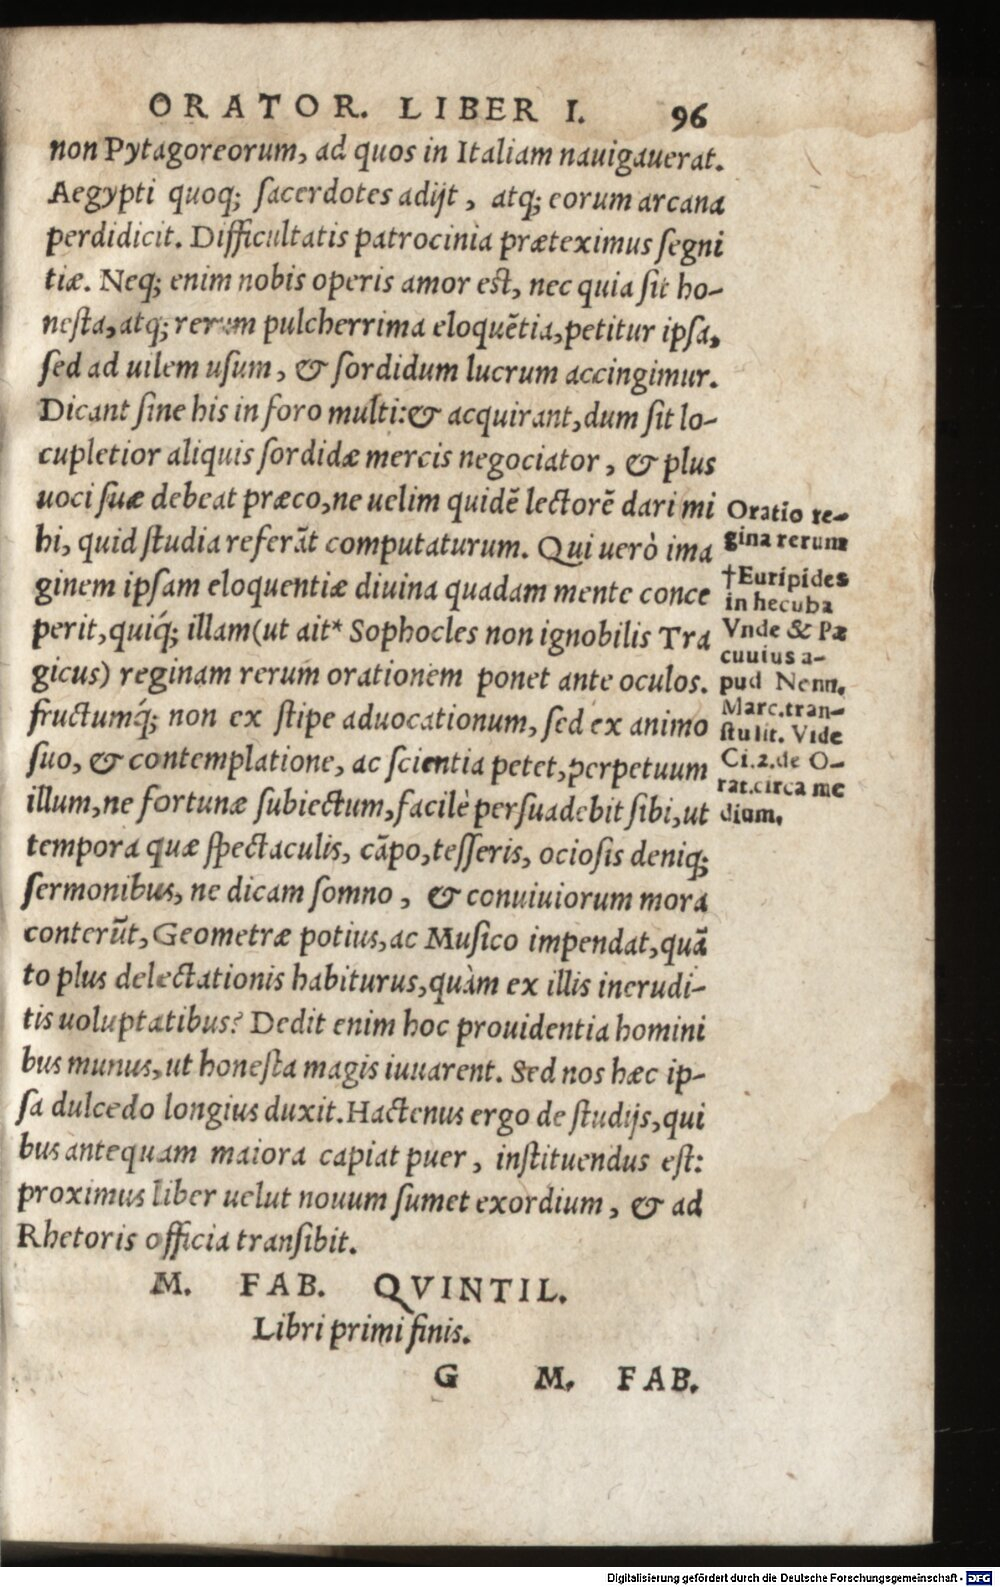 ORATOR. LIBER I. 96
non Pytagoreorum, ad quos in Italiam nauigauerat.
Aegypti quoq; ſacerdotes adijt, atq; eorum arcana
perdidicit. Difficultatis patrocinia præteximus ſegni
tiæ. Neq; enim nobis operis amor eſt, nec quia ſit ho-
neſta, atq; rerum pulcherrima eloquẽtia, petitur ipſa,
ſed ad uilem uſum, & ſordidum lucrum accingimur.
Dicant ſine his in foro multi: & acquirant, dum ſit lo-
cupletior aliquis ſordidæ mercis negociator, & plus
uoci ſuæ debeat præco, ne uelim quidẽ lectorẽ dari mi
hi, quid ſtudia referãt computaturum. Qui uerò ima
ginem ipſam eloquentiæ diuina quadam mente conce
perit, quiq́; illam (ut ait* Sophocles non ignobilis Tra
gicus) reginam rerum orationem ponet ante oculos.
fructumq́; non ex ſtipe aduocationum, ſed ex animo
ſuo, & contemplatione, ac ſcientia petet, perpetuum
illum, ne fortunæ ſubiectum, facilè perſuadebit ſibi, ut
tempora quæ ſpectaculis, cãpo, teſſeris, ocioſis deniq;
ſermonibus, ne dicam ſomno, & conuiuiorum mora
conterũt, Geometræ potius, ac Muſico impendat, quã
to plus delectationis habiturus, quàm ex illis inerudi-
tis uoluptatibus? Dedit enim hoc prouidentia homini
bus munus, ut honeſta magis iuuarent. Sed nos hæc ip-
ſa dulcedo longius duxit. Hactenus ergo de ſtudijs, qui
bus antequam maiora capiat puer, inſtituendus eſt:
proximus liber uelut nouum ſumet exordium, & ad
Rhetoris officia tranſibit.
M. FAB. QVINTIL.
Libri primi finis.
G M. FAB.
Oratio re-
gina rerum
†Euripides
in hecuba
Vnde & Pæ
cuuius a-
pud Nenn.
Marc. tran-
ſtulit. Vide
Ci. 2. de O-
rat. circa me
dium.
Digitalisierung gefördert durch die Deutsche Forschungsgemeinschaft - DFG